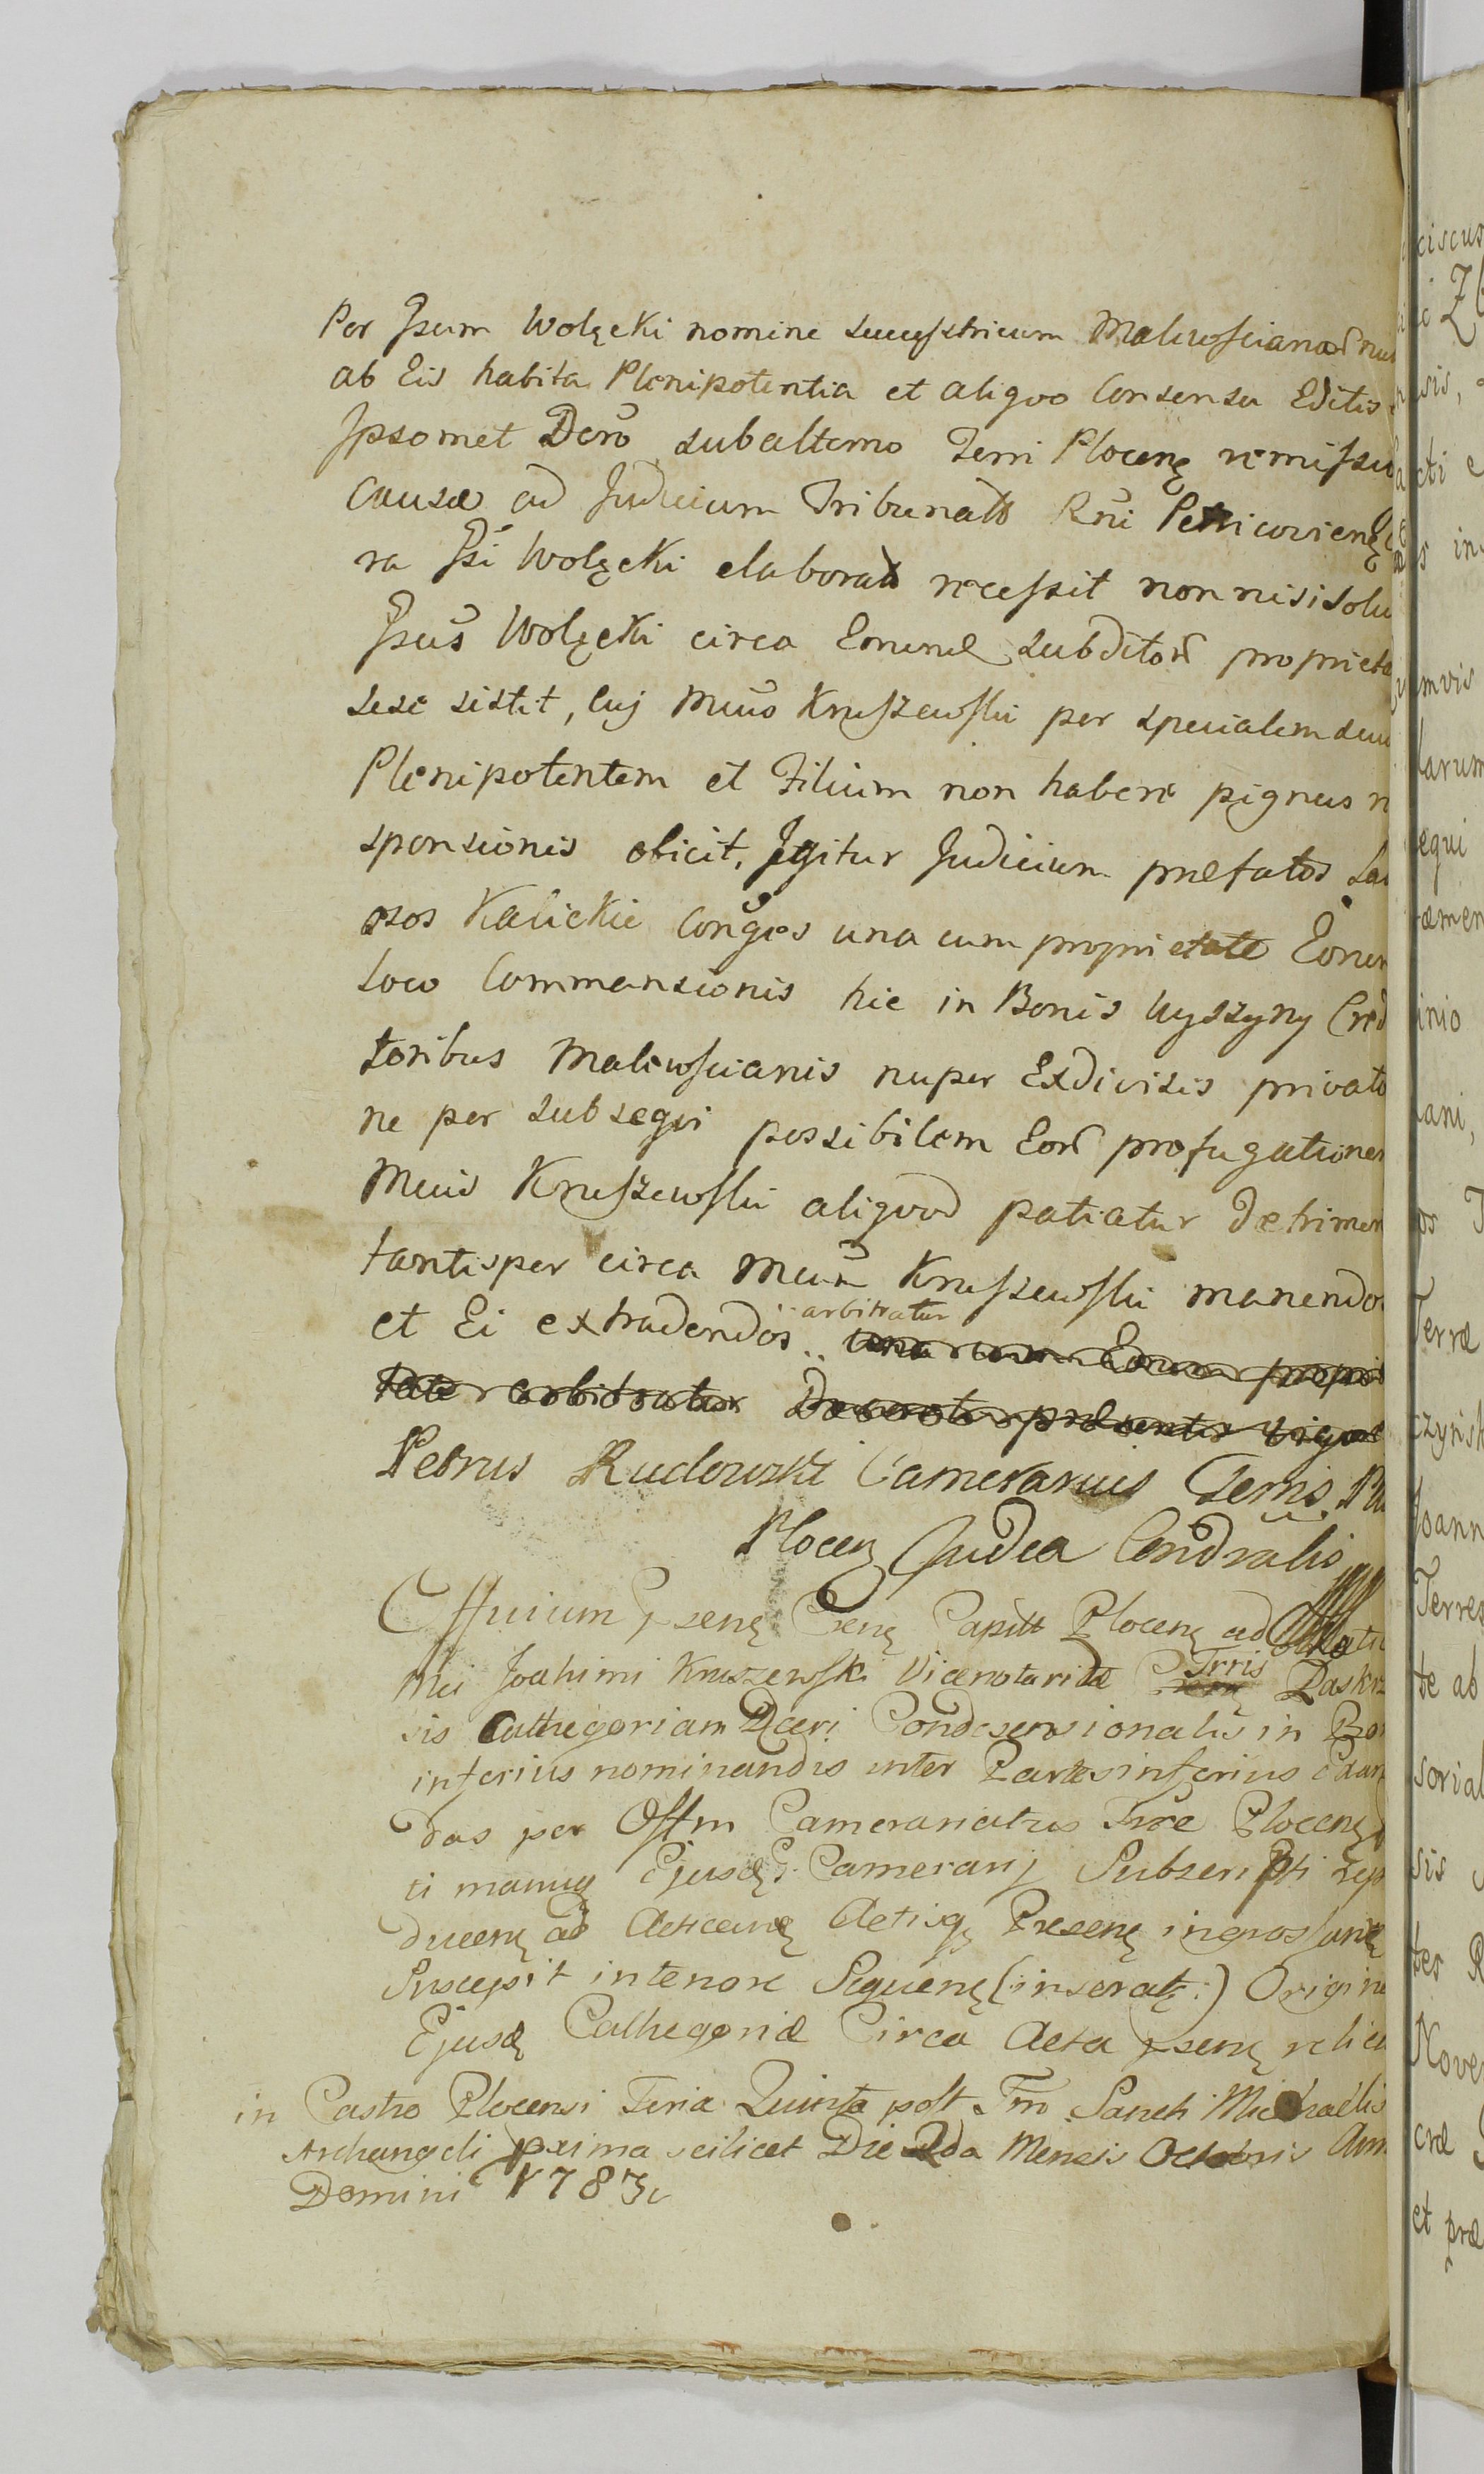 Per Jsum Wolęcki nomine successtricum Maliwscianar nul
ab Eis habita Plenipotentia et aliquo Consensu Editis
Jpsomet Dero subalterno Terri Plocenę remissu
Causæ ad Judicium Tribunalis Rni Petricoviene
ra Jsi Wolęcki elaborata recessit non nisi solu
Jsus Wolęcki circa Emunę subditor proprieta
sese sistit, Cuj Mcus Kruszewski per specialem suu
Plenipotentem et Filium non habere pignus r
sponsionis obicit, Jgitur Judicium præfatos La
osos Kalickie Conges una cum proprietate Eorum
Loco Commansionis hic in Bonis Uyszyny Cred
toribus Maliwscianis nuper Exdivisis privato
ne per subsequi possibilem Eor profugationem
Mcus Kruszewski aliquod patiatur detrimen
tantisper circa Mcum Kruszewski manendos
arbitratur
et Ei extradendos. una cum Eorum propri
tate arbitratur Decreto præsentis vigore
Petrus Rudowski Camerarius Terris
Plocen Judex Condealis
Officium psenę Crenę Capitt Plocenę ad Oblatu
Trris
Mci Joahimi Kruszewski Vicenotarii Raskr
sis Cathegoriam Dceri Condescensionalis in Bon
inferius nominandis inter Partes inferius Exan
das per Offm Camerariatus Trræ Plocenę
ti manuę Ejusdę Camerarij Subscripti
ducenę ad Acticanę Actisq Præsenę ingrossanę
Suscepit in tenore Sequenę (inseratę:) Origine
Ejusdę Cathegoriæ Circa Acta psenę relict
in Castro Plocensi Feria Quinta post Fm Sancti Michaelis
Archangeli proxima scilicet Die 2da Mensis Octobris Ann
Domini 1783.